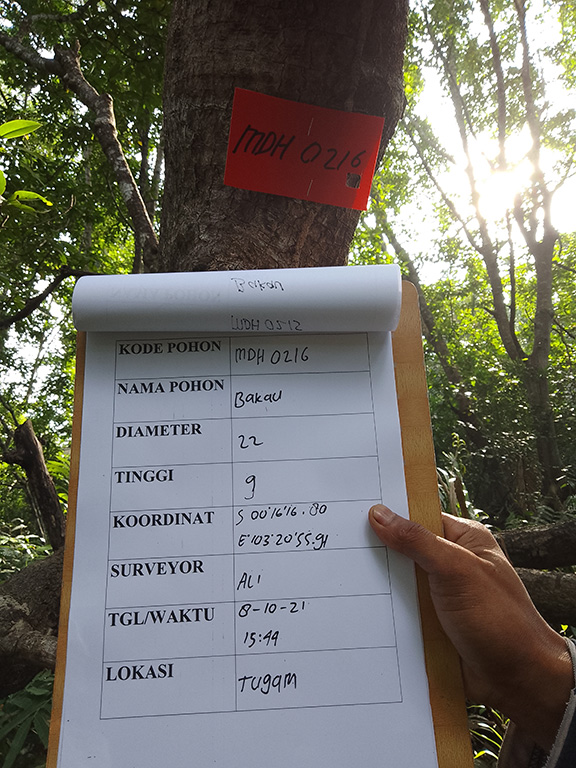 MDH 0216
Bakau
KODE POHON MDH 0216
NAMA POHON Bakau
DIAMETER 22
TINGGI 9
KOORDINAT S 00°16'16.80
E°103°20'55.91
SURVEYOR ALI
TGL/WAKTU 8-10-21
15:44
LOKASI Tugam